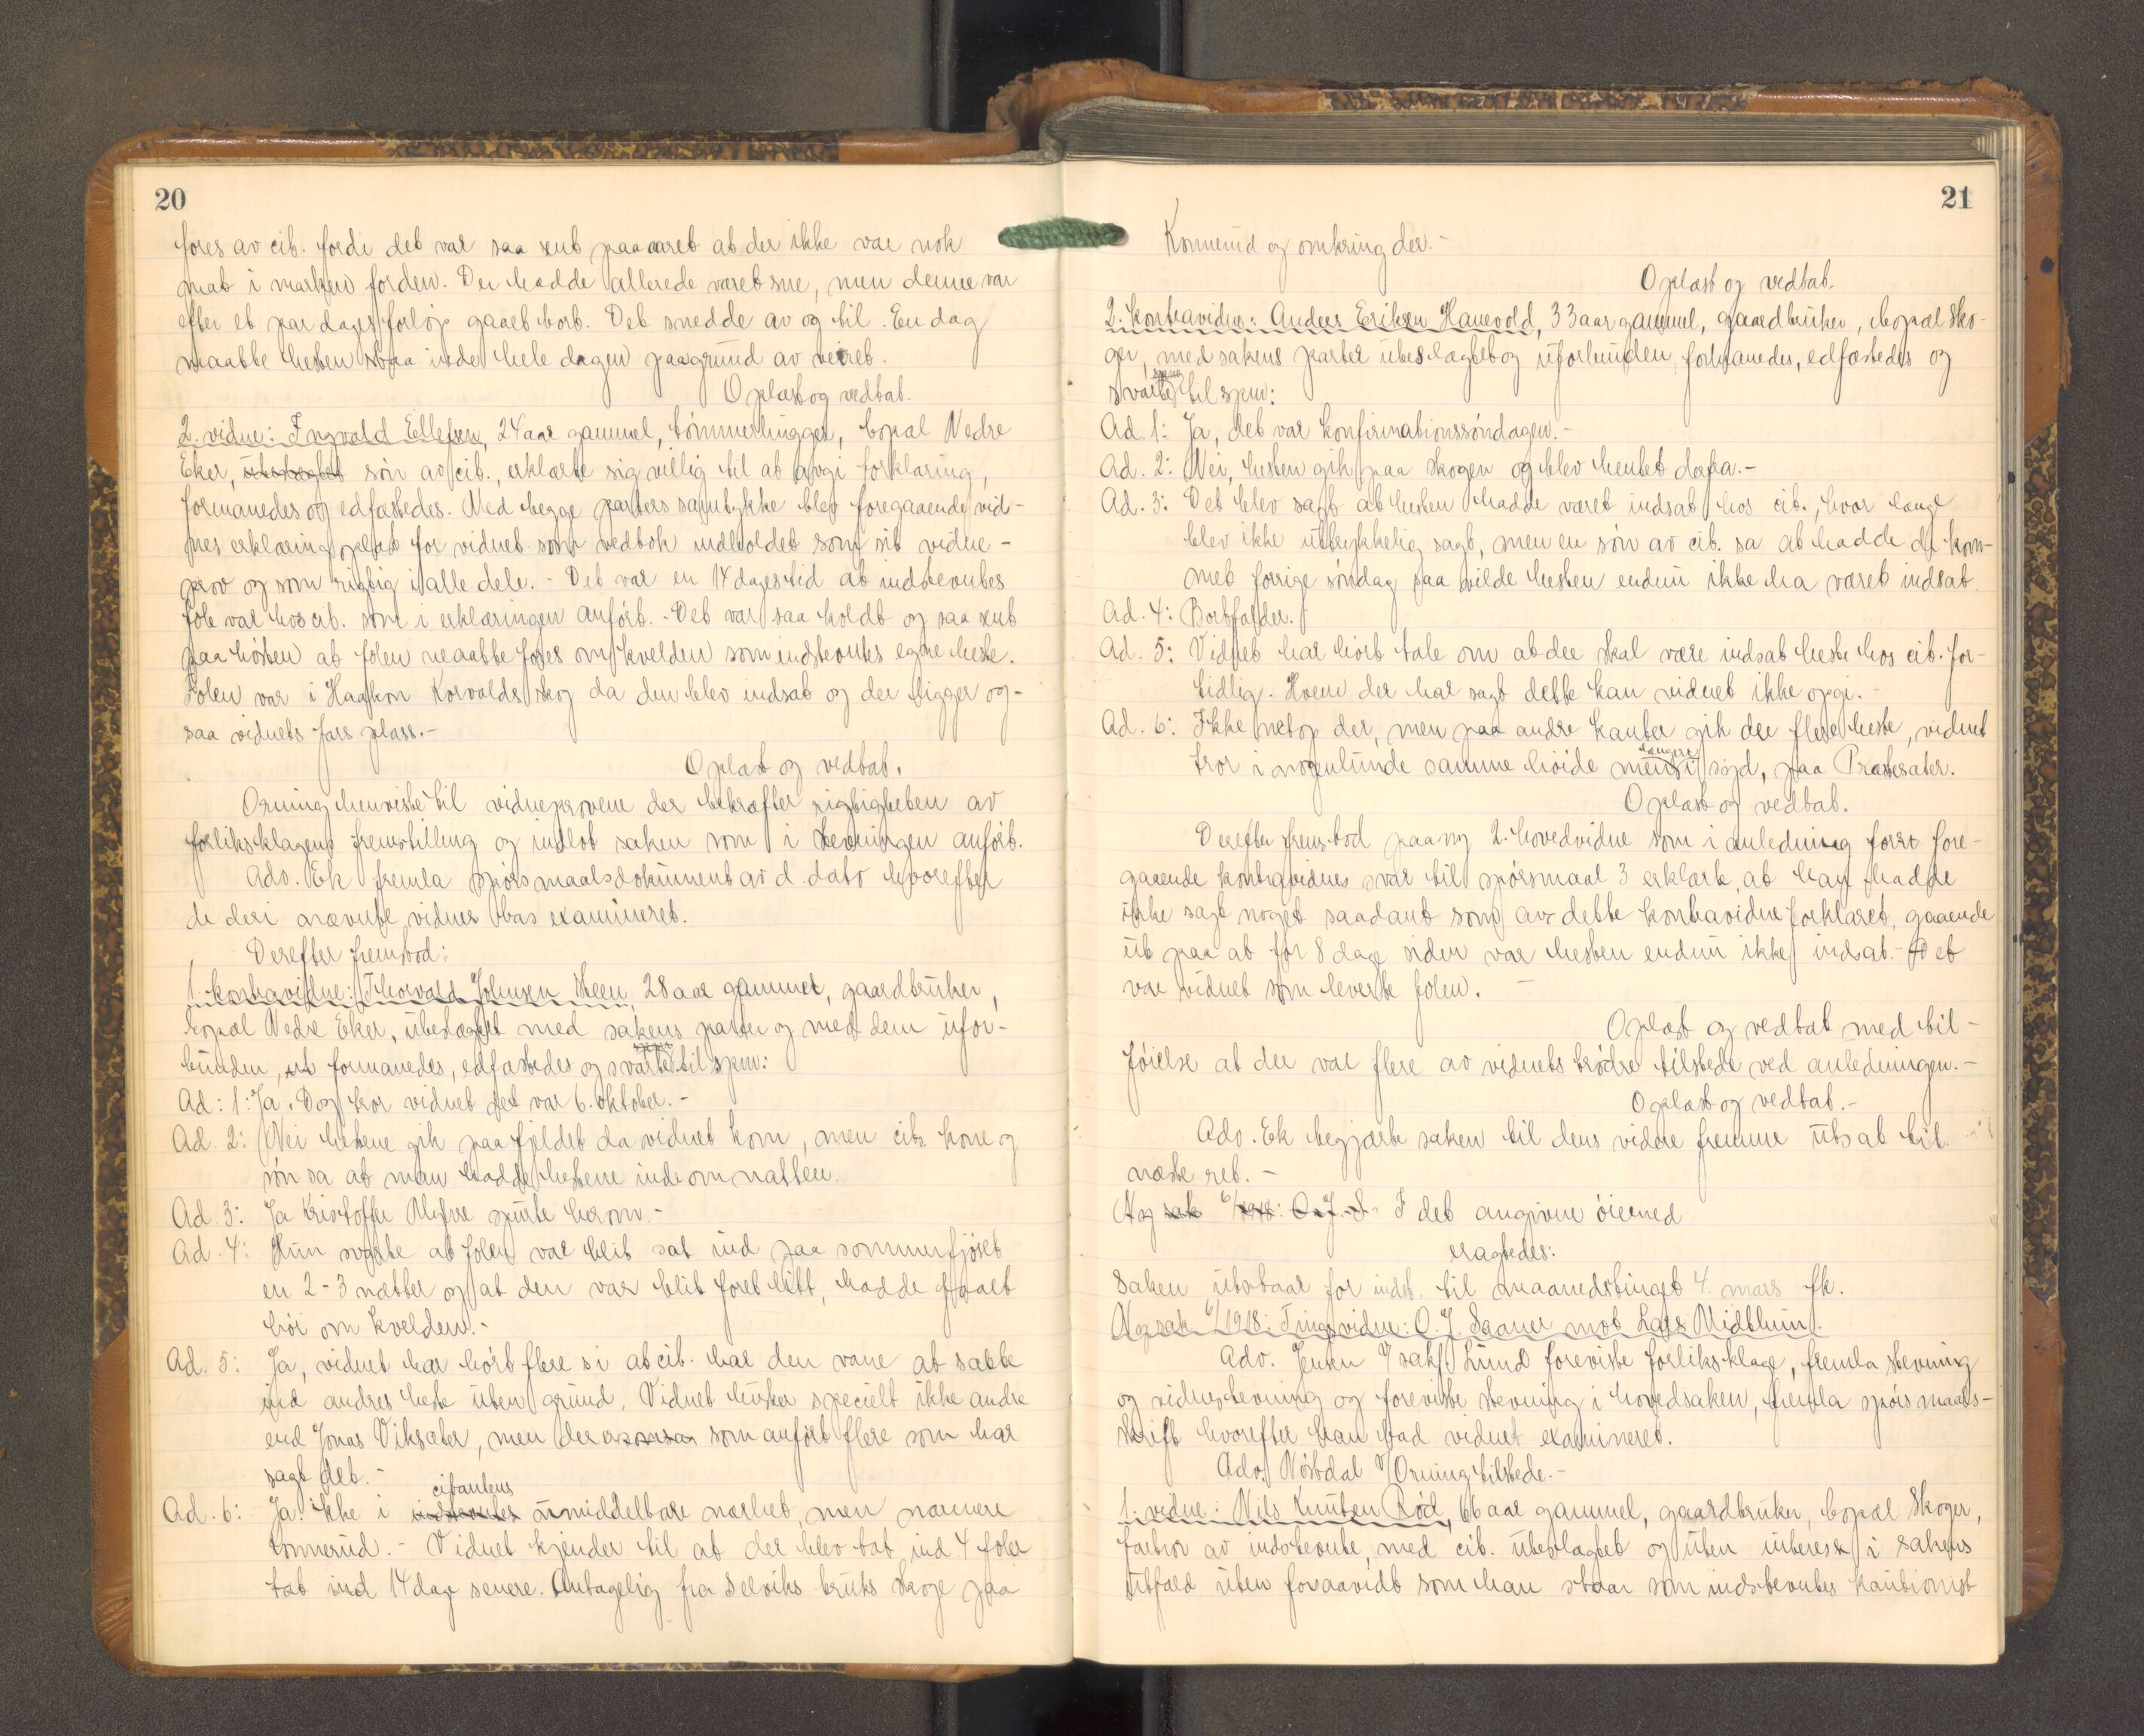 20
fores av cit. fordi det var saa sent paa aaret at der ikke var nok
mat i marken for den. Der hadde allerede været sne, men denne var
efter et par dages forløp gaaet bort. Det snedde av og til. En dag
maatte hesten staa inde hele dagen paa grund av veiret.
Oplæst og vedtat.
2. vidne: Ingvald Ellefsen, 24 aar gammel, tømmerhugger, bopæl Nedre
Eker, ubeslegtet søn av cit., erklærte sig villig til at avgi forklaring,
formanedes og edfæstedes. Med begge parters samtykke blev foregaaende vid-
nes erklæring oplæst for vidnet som vedtok indholdet som sit vidne-
prov og som rigtig i alle dele. - Det var en 14 dages tid at indstevntes
fole var hos cit. som i erklæringen anført. - Det var saa koldt og saa sent
paa høsten at folen maatte fores om kvelden som indstevntes egne heste.
Folen var i Haakon Korvalds skog da den blev indsat og der ligger og-
saa vidnets fars plass. -
Oplæst og vedtat.
Orning henviste til vidneprovene der bekræfter rigtigheten av
forliksklagens fremstilling og indlot saken som i stevningen anført.
Adv. Ek fremla spørsmaalsdokument av d. dato hvorefter
de deri nævnte vidner bas examineret.
Derefter fremstod:
1. kontravidne: Thorvald Johnsen Steen, 28 aar gammel, gaardbruker,
bopæl Nedre Eker, ubeslægtet med sakens parter og med dem ufor-
bunden, formanedes, edfæstedes og svarte til spm:
Ad: 1: Ja. Dog tror vidnet det var 6. oktober. -
Ad. 2: Nei hestene gik paa fjeldet da vidnet kom, men cits kone og
søn sa at man hadde hestene inde om natten.
Ad. 3: Ja Kristoffer spurte herom. -
Ad. 4: Hun svarte at folen var blit sat ind paa sommerfjøset
en 2-3 nætter og at den var blit foret litt, hadde faaet
høi om kvelden. -
Ad. 5: Ja, vidnet har hørt flere si at cit. har den vane at sætte
ind andres heste uten grund. Vidnet husker specielt ikke andre
end Jonas Viksæter, men der som anført flere som har
sagt det. -
citantens
Ad. 6: Ja. ikke i indstevntes umiddelbare nærhet, men nærmere
Konnerud. - Vidnet kjender til at der blev tat ind 4 foler
tat ind 14 dage senere. Antagelig fra Selviks bruks skoge paa
21
Konnerud og omkring der. -
Oplæst og vedtat.
2. kontravidne: Anders Eriksen Hanevold, 33 aar gammel, gaardbruker, bopæl Sko-
ger, med sakens parter ubeslægtet og uforbunden, formanedes, edfæstedes og
svarte til spm:
Ad. 1: Ja, det var konfirmationssøndagen. -
Ad. 2: Nei, hesten gik paa skogen og blev hentet derfra. -
Ad. 3: Det blev sagt at hesten hadde været indsat hos cit., hvor længe
blev ikke uttrykkelig sagt, men en søn av cit. sa at hadde de kom-
met forrige søndag saa vilde hesten endnu ikke ha været indsat.
Ad. 4: Bortfalder.
Ad. 5: Vidnet har hørt tale om at der skal være indsat heste hos cit. for-
tidlig. Hvem der har sagt dette kan vidnet ikke opgi. -
Ad. 6: Ikke netop der, men paa andre kanter gik der flere heste, vidnet
længere
tror i nogenlunde samme høide men i syd, paa Præstesæter.
Oplæst og vedtat.
Derefter fremstod paa ny 2. hovedvidne som i anledning forst fore-
gaaende kontravidnes svar til spørsmaal 3 erklærte, at han hadde
ikke sagt noget saadant som av dette kontravidne forklaret, gaaende
ut paa at for 8 dage siden var hesten endnu ikke indsat. - Det
var vidnet som leverte folen. -
Oplæst og vedtat med til-
føielse at der var flere av vidnets brødre tilstede ved anledningen. -
Oplæst og vedtat. -
Adv. Ek begjærte saken til dens videre fremme utsat til
næste ret. -
Ag sak 6/1918: O. J. S. I det angivne øiemed
eragtedes:
Saken utstaar for indst. til maanedstinget 4. mars fk.
Ag sak 6/1918: Tingsvidne: O. J. Saaner mot Lars Midtlum.
Adv. Jenken Isaks. Lund foreviste forliksklage, fremla stevning
og vidnestevning og foreviste stevning i hovedsaken, fremla spørsmaals-
skrift hvorefter han bad vidnet examineret.
Adv. Nøstdal f/Orning tilstede. -
1. vidne: Nils Knutsen Rød, 66 aar gammel, gaardbruker, bopæl Skoger,
farbror av indstevnte, med cit. ubeslægtet og uten interesse i sakens
utfald uten forsaavidt som han staar som indstevntes kautionist